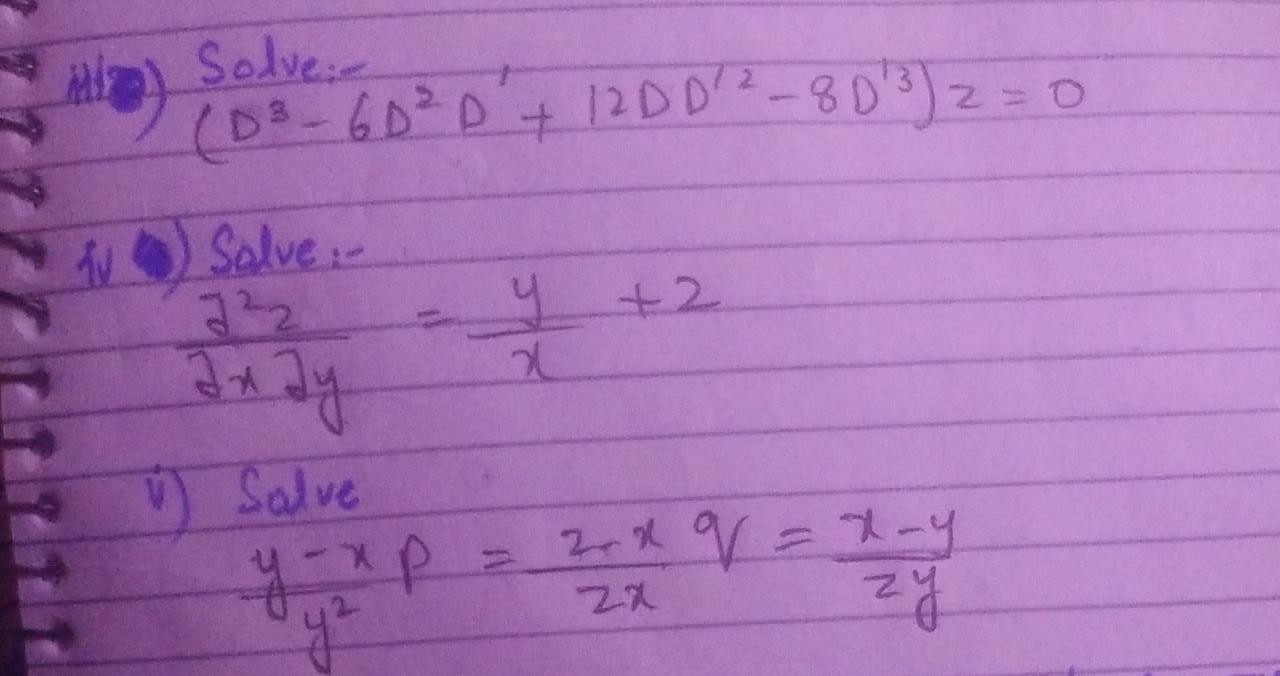 iii) Solve:-
(D³ - 6D²D' + 12DD'² - 8D'³)z = 0
iv) Solve:-
∂²z/∂x∂y = y/x + 2
v) Solve
y-x/y² p = z-x/zx q = x-y/zy